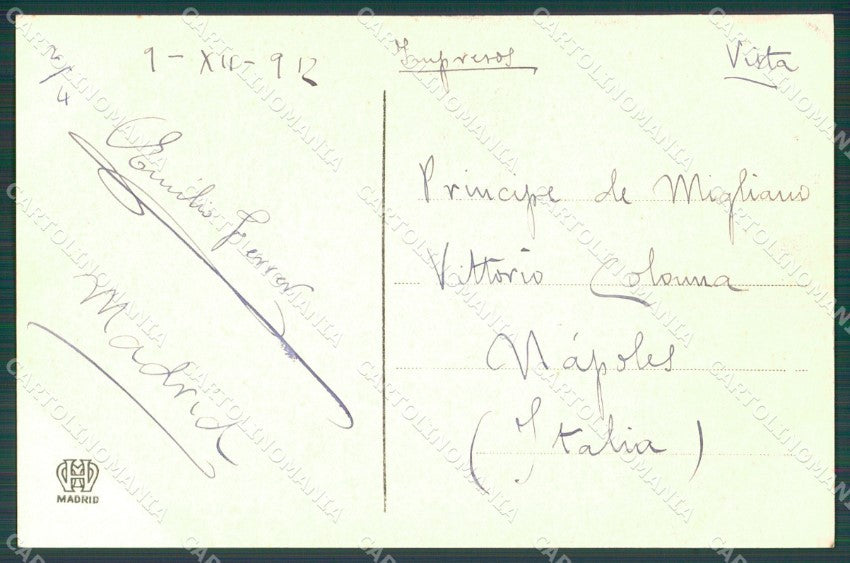 9 - XII - 912
Emilio Ferrer
Madrid
MADRID
Impresos
Vista
Principe de Migliano
Vittorio Colonna
Nápoles
(Italia)
CARTOLINOMANIA